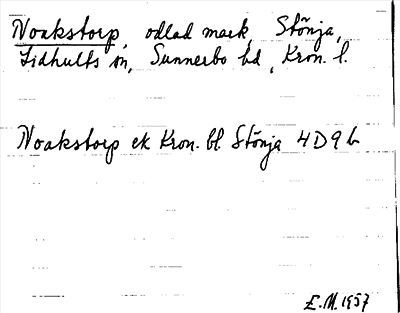 Noakstorp, odlad mark, Stönja,
Lidhults sn, Sunnerbo hd, Kron. l.
Noakstorp ek Kron. bl. Stönja 4D9b
E.M. 1957